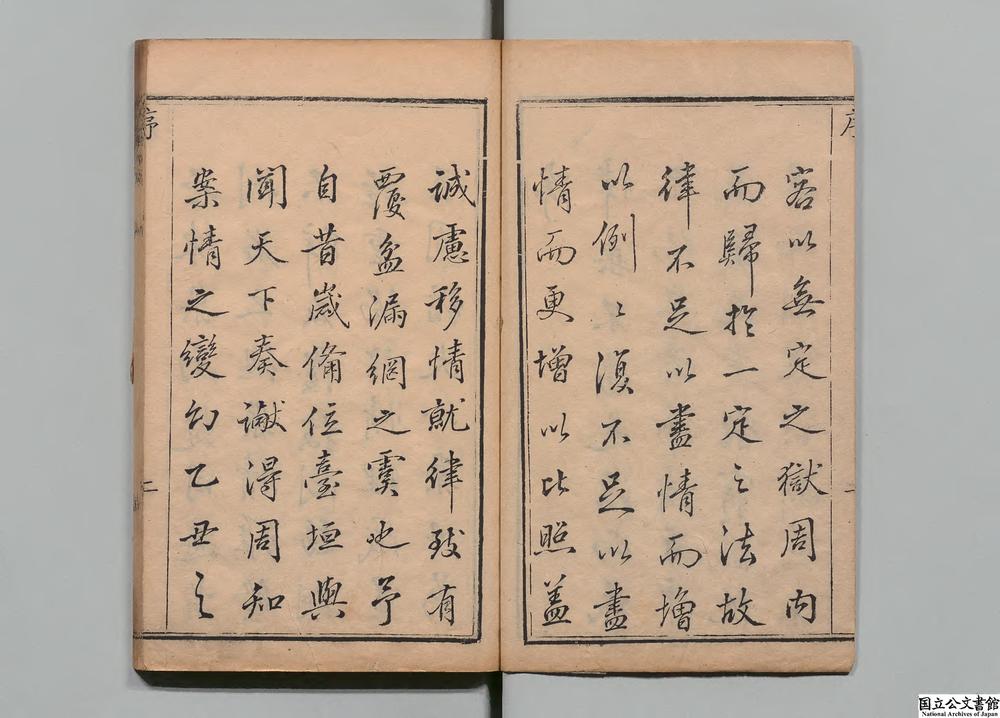 序
客以無定之獄周内
而歸於一定之法故
律不足以盡情而增
以例〻復不足以盡
情而更增以比照蓋
一
誠慮移情就律致有
覆盆漏網之虞也予
自昔歲備位臺垣與
聞天下奏讞得周知
案情之變幻乙丑之
序
二
国立公文書館
National Archives of Japan